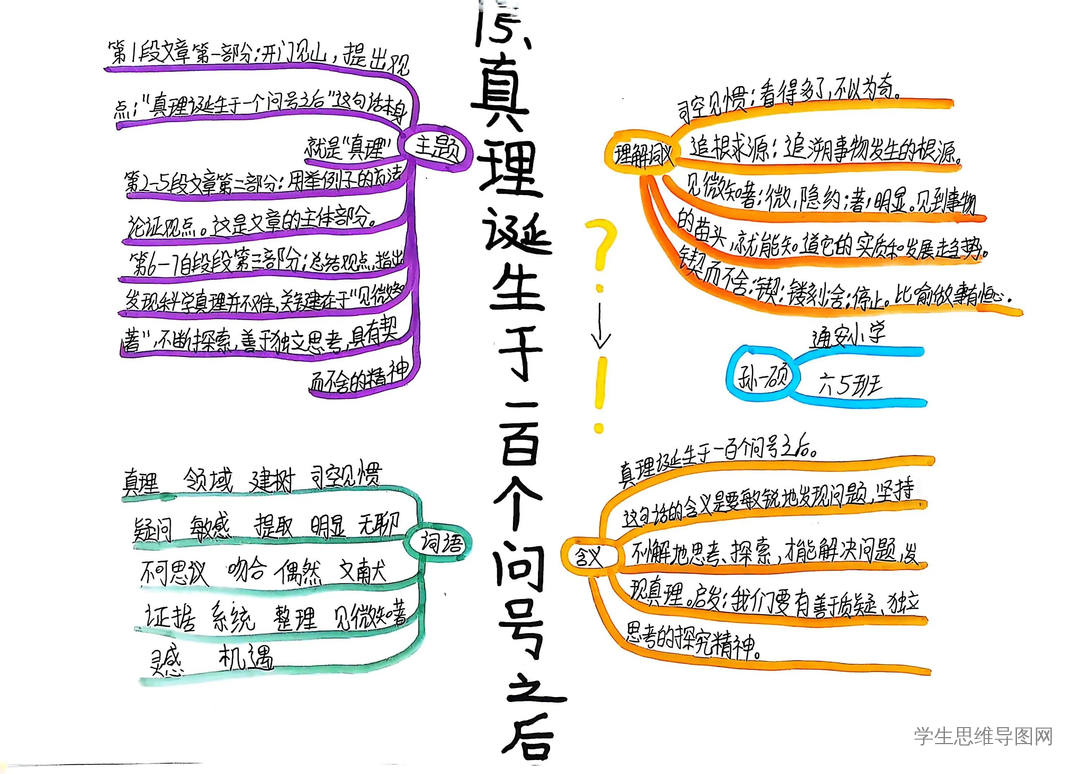 15、真理诞生于一百个问号之后
主题
第1段文章第一部分：开门见山，提出观
点："真理诞生于一个问号之后"这句话本身
就是"真理"
第2-5段文章第二部分：用举例子的方法
论证观点。这是文章的主体部分。
第6-7自段段第三部分：总结观点，指出
发现科学真理并不难，关键在于"见微知
著"，不断探索，善于独立思考，具有契
而不舍的精神
词语
真理 领域 建树 司空见惯
疑问 敏感 提取 明显 无聊
不可思议 吻合 偶然 文献
证据 系统 整理 见微知著
灵感 机遇
理解词义
司空见惯：看得多了，不以为奇。
追根求源：追溯事物发生的根源。
见微知著：微，隐约；著，明显。见到事物
的苗头，就能知道它的实质和发展趋势。
锲而不舍：锲：镂刻；舍：停止。比喻做事有恒心。
?
↓
!
孙一硕
通安小学
六5班
含义
真理诞生于一百个问号之后。
这句话的含义是要敏锐地发现问题，坚持
不懈地思考、探索，才能解决问题，发
现真理。启发：我们要有善于质疑、独立
思考的探究精神。
学生思维导图网